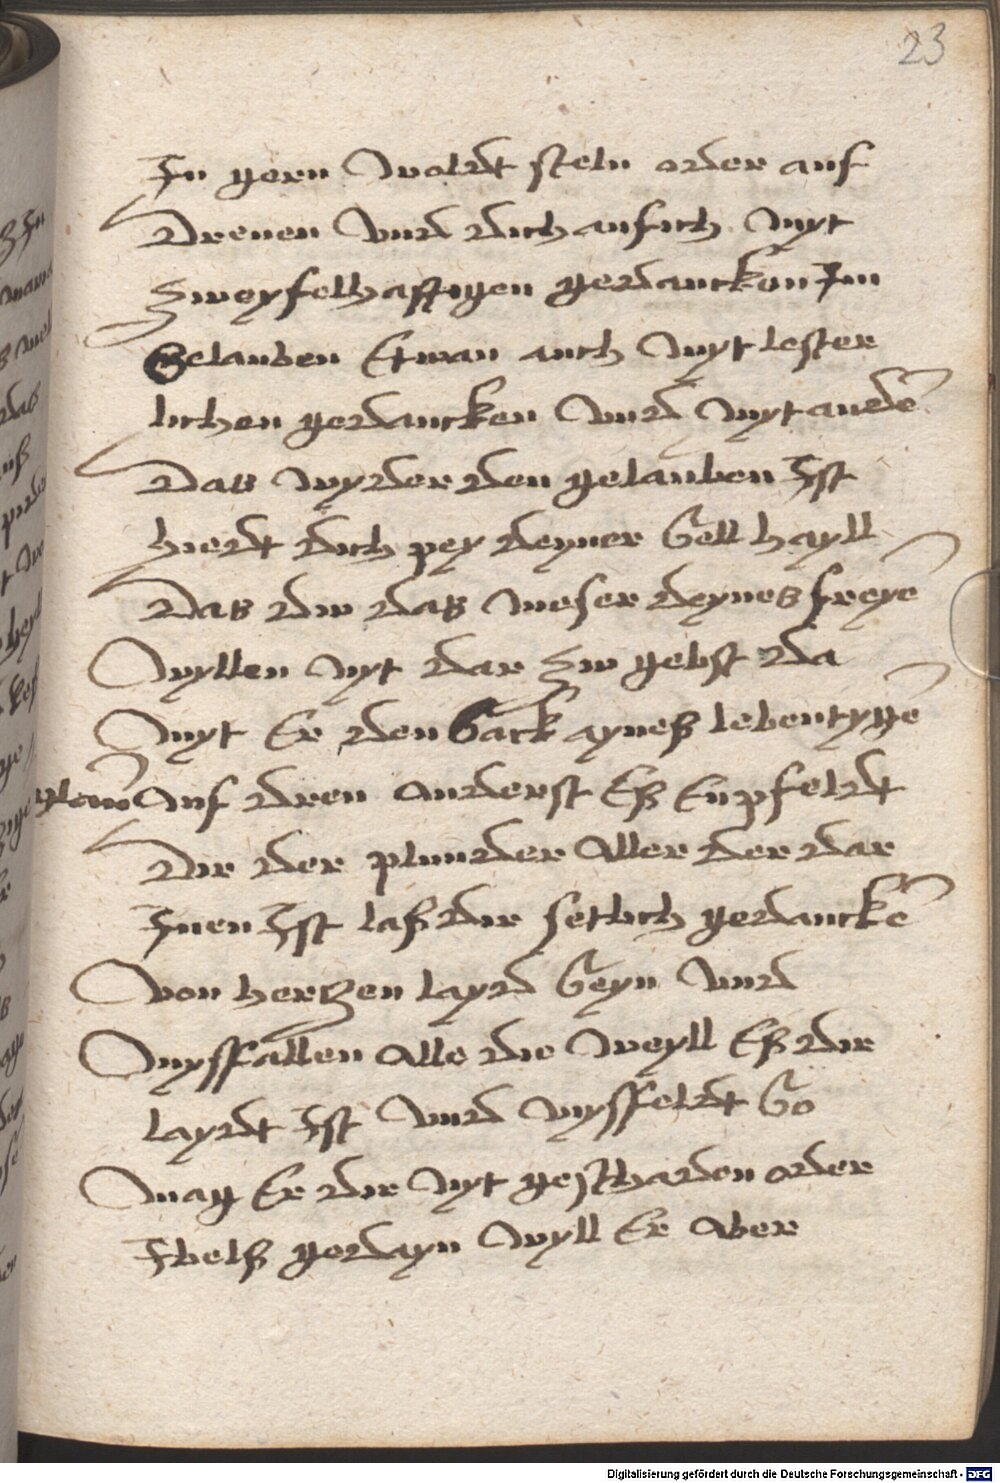 23
Jn gern woldt steln oder auf
Drenen vnd dich anfich myt
Zweyfelhafftigen gedancken Jm
Gelauben Etwan auch myt lester
lichen gedancken vnd myt andē
Das wyder den gelauben Jst
hiedt dich pey deyner sell hayll
Das dw das meser deynes freyē
wyllen nyt dar Zw gebst da
myt Er den sack ayneß lebentygē
auf dren anderst Eß Enpfeldt
Dir der plunder aller der dar
Jnen Jst laß dir setlich gedanckē
von herczen layd seyn vnd
myssfallen alle die weyll Eß dir
laydt Jst vnd myssfeldt so
mag Er dir nyt geschaden oder
Jbelß gedayn wyll Er aber
Digitalisierung gefördert durch die Deutsche Forschungsgemeinschaft - DFG